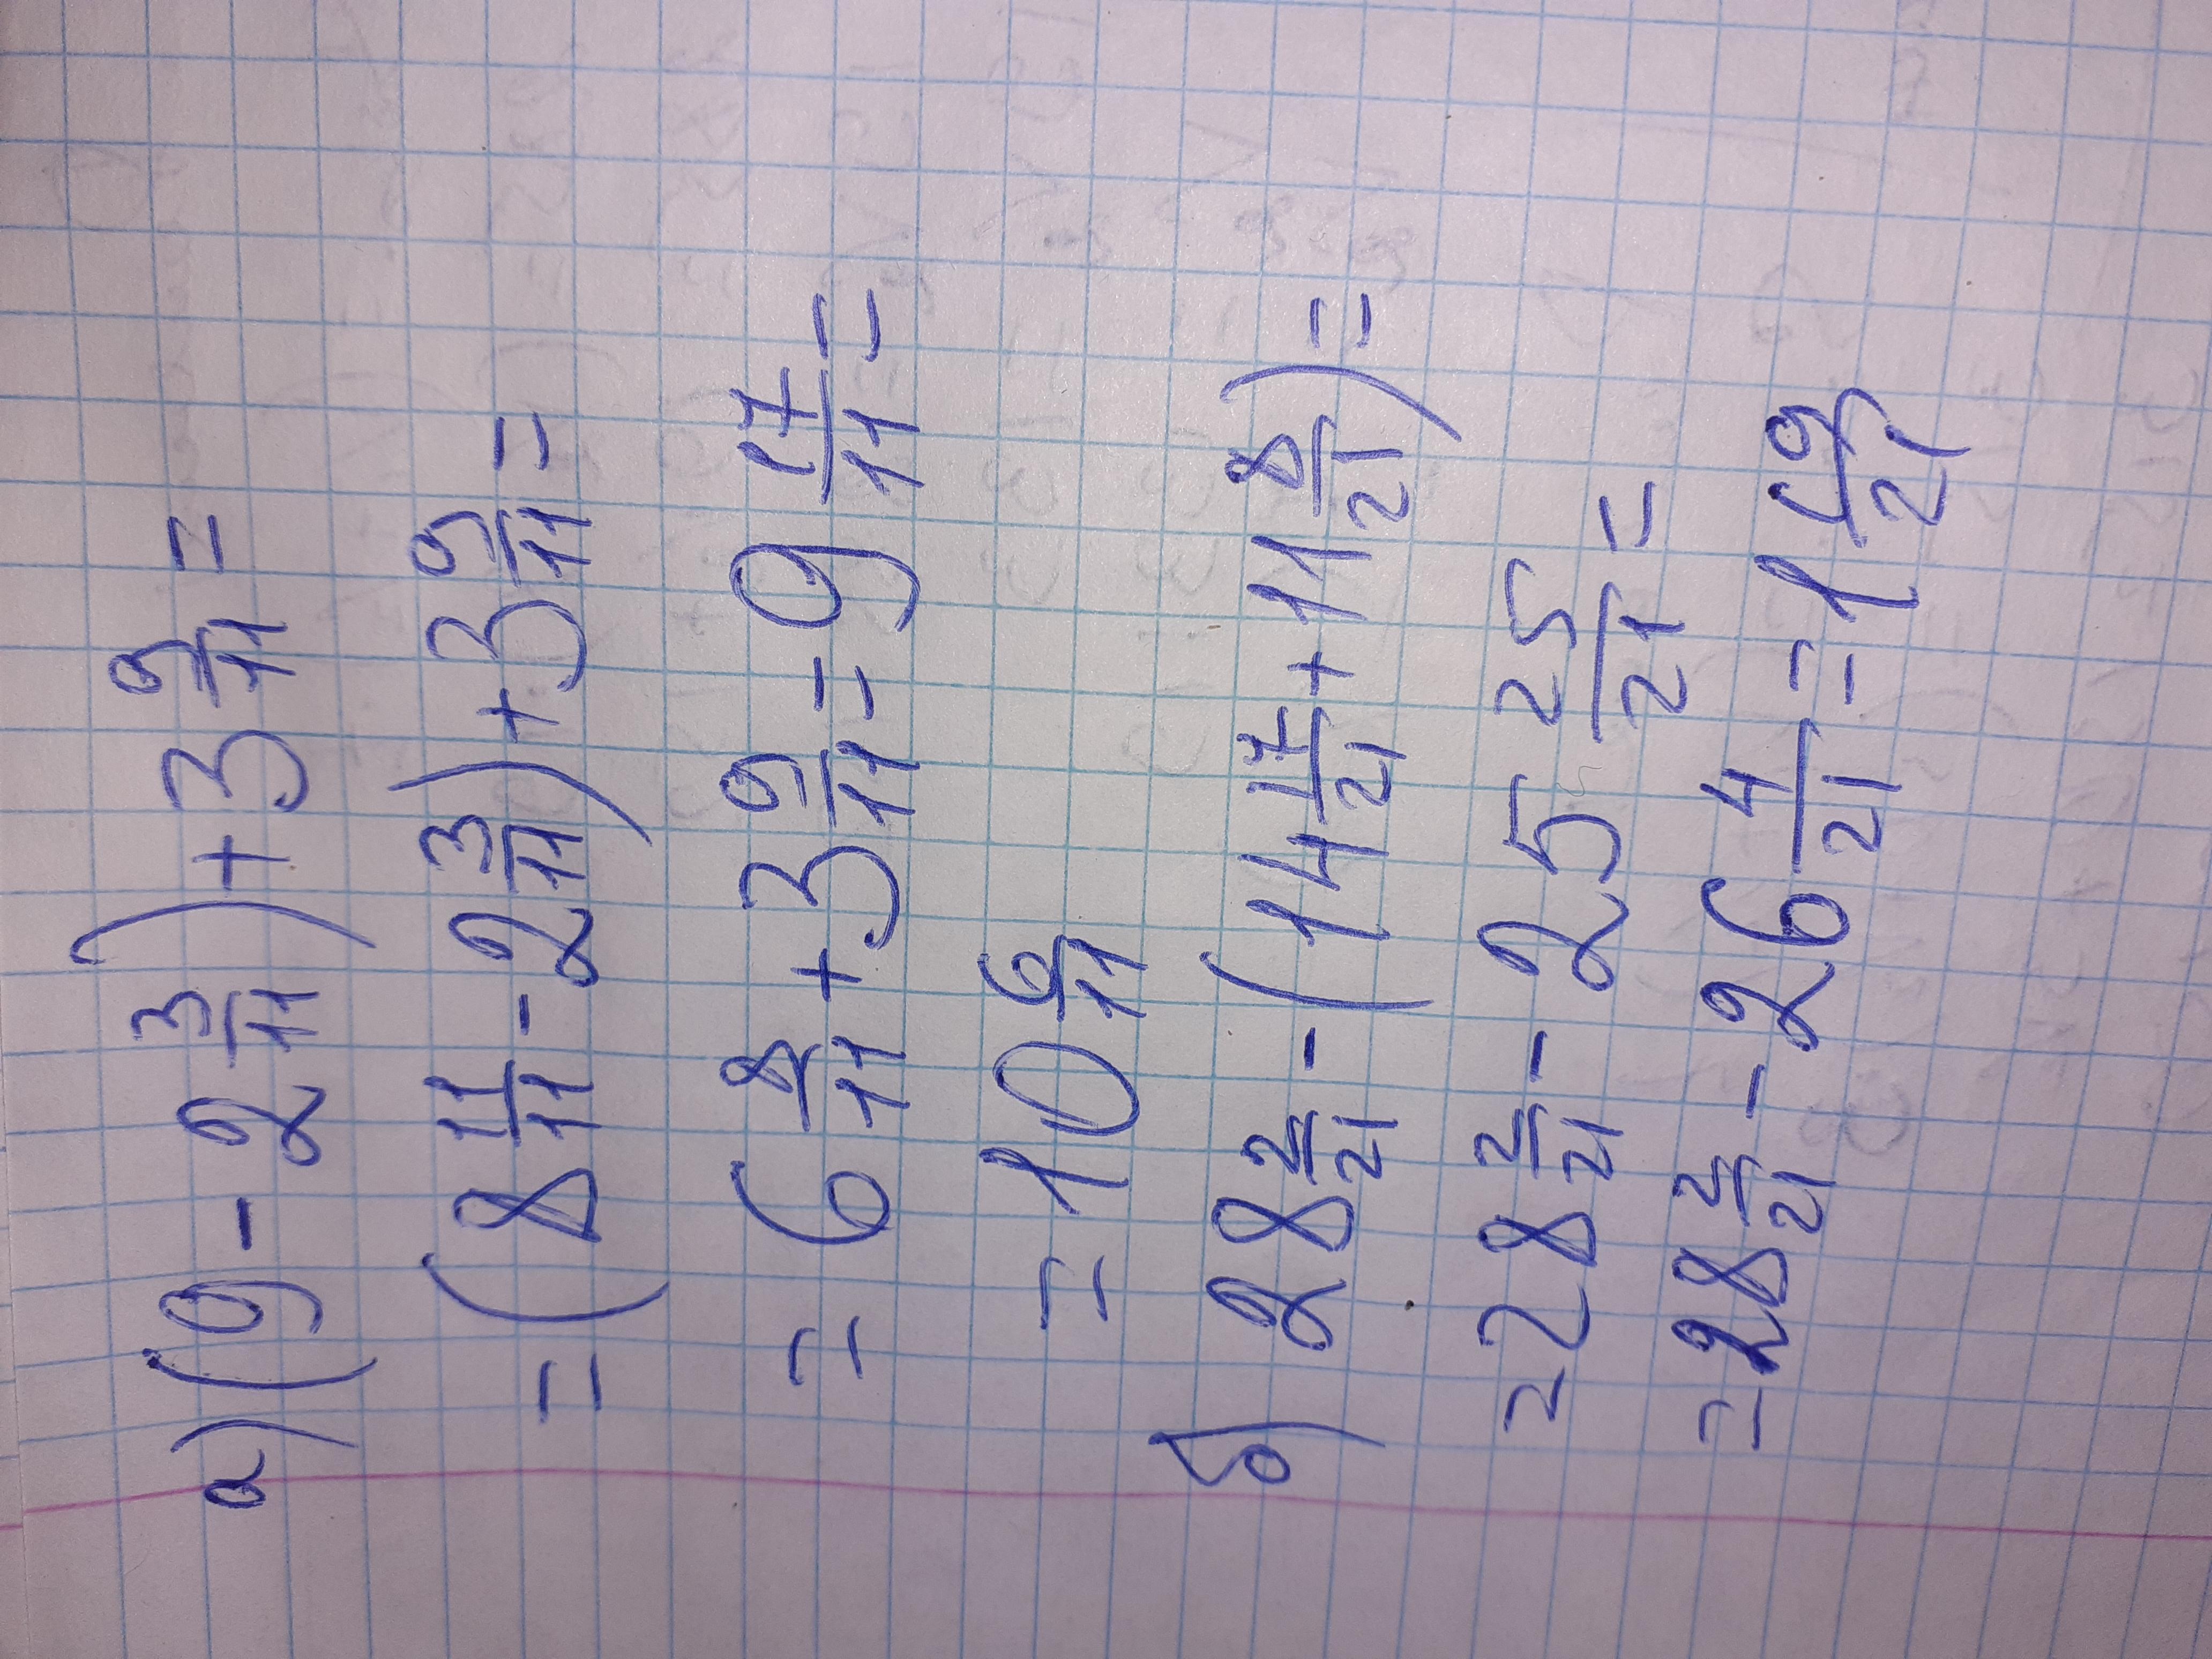 а) (9 - 2 3/11) + 3 9/11 =
= (8 11/11 - 2 3/11) + 3 9/11 =
= 6 8/11 + 3 9/11 = 9 17/11 =
= 10 6/11
б) 28 2/21 - (14 17/21 + 11 8/21) =
= 28 2/21 - 25 25/21 =
= 28 2/21 - 26 4/21 = 1 19/21